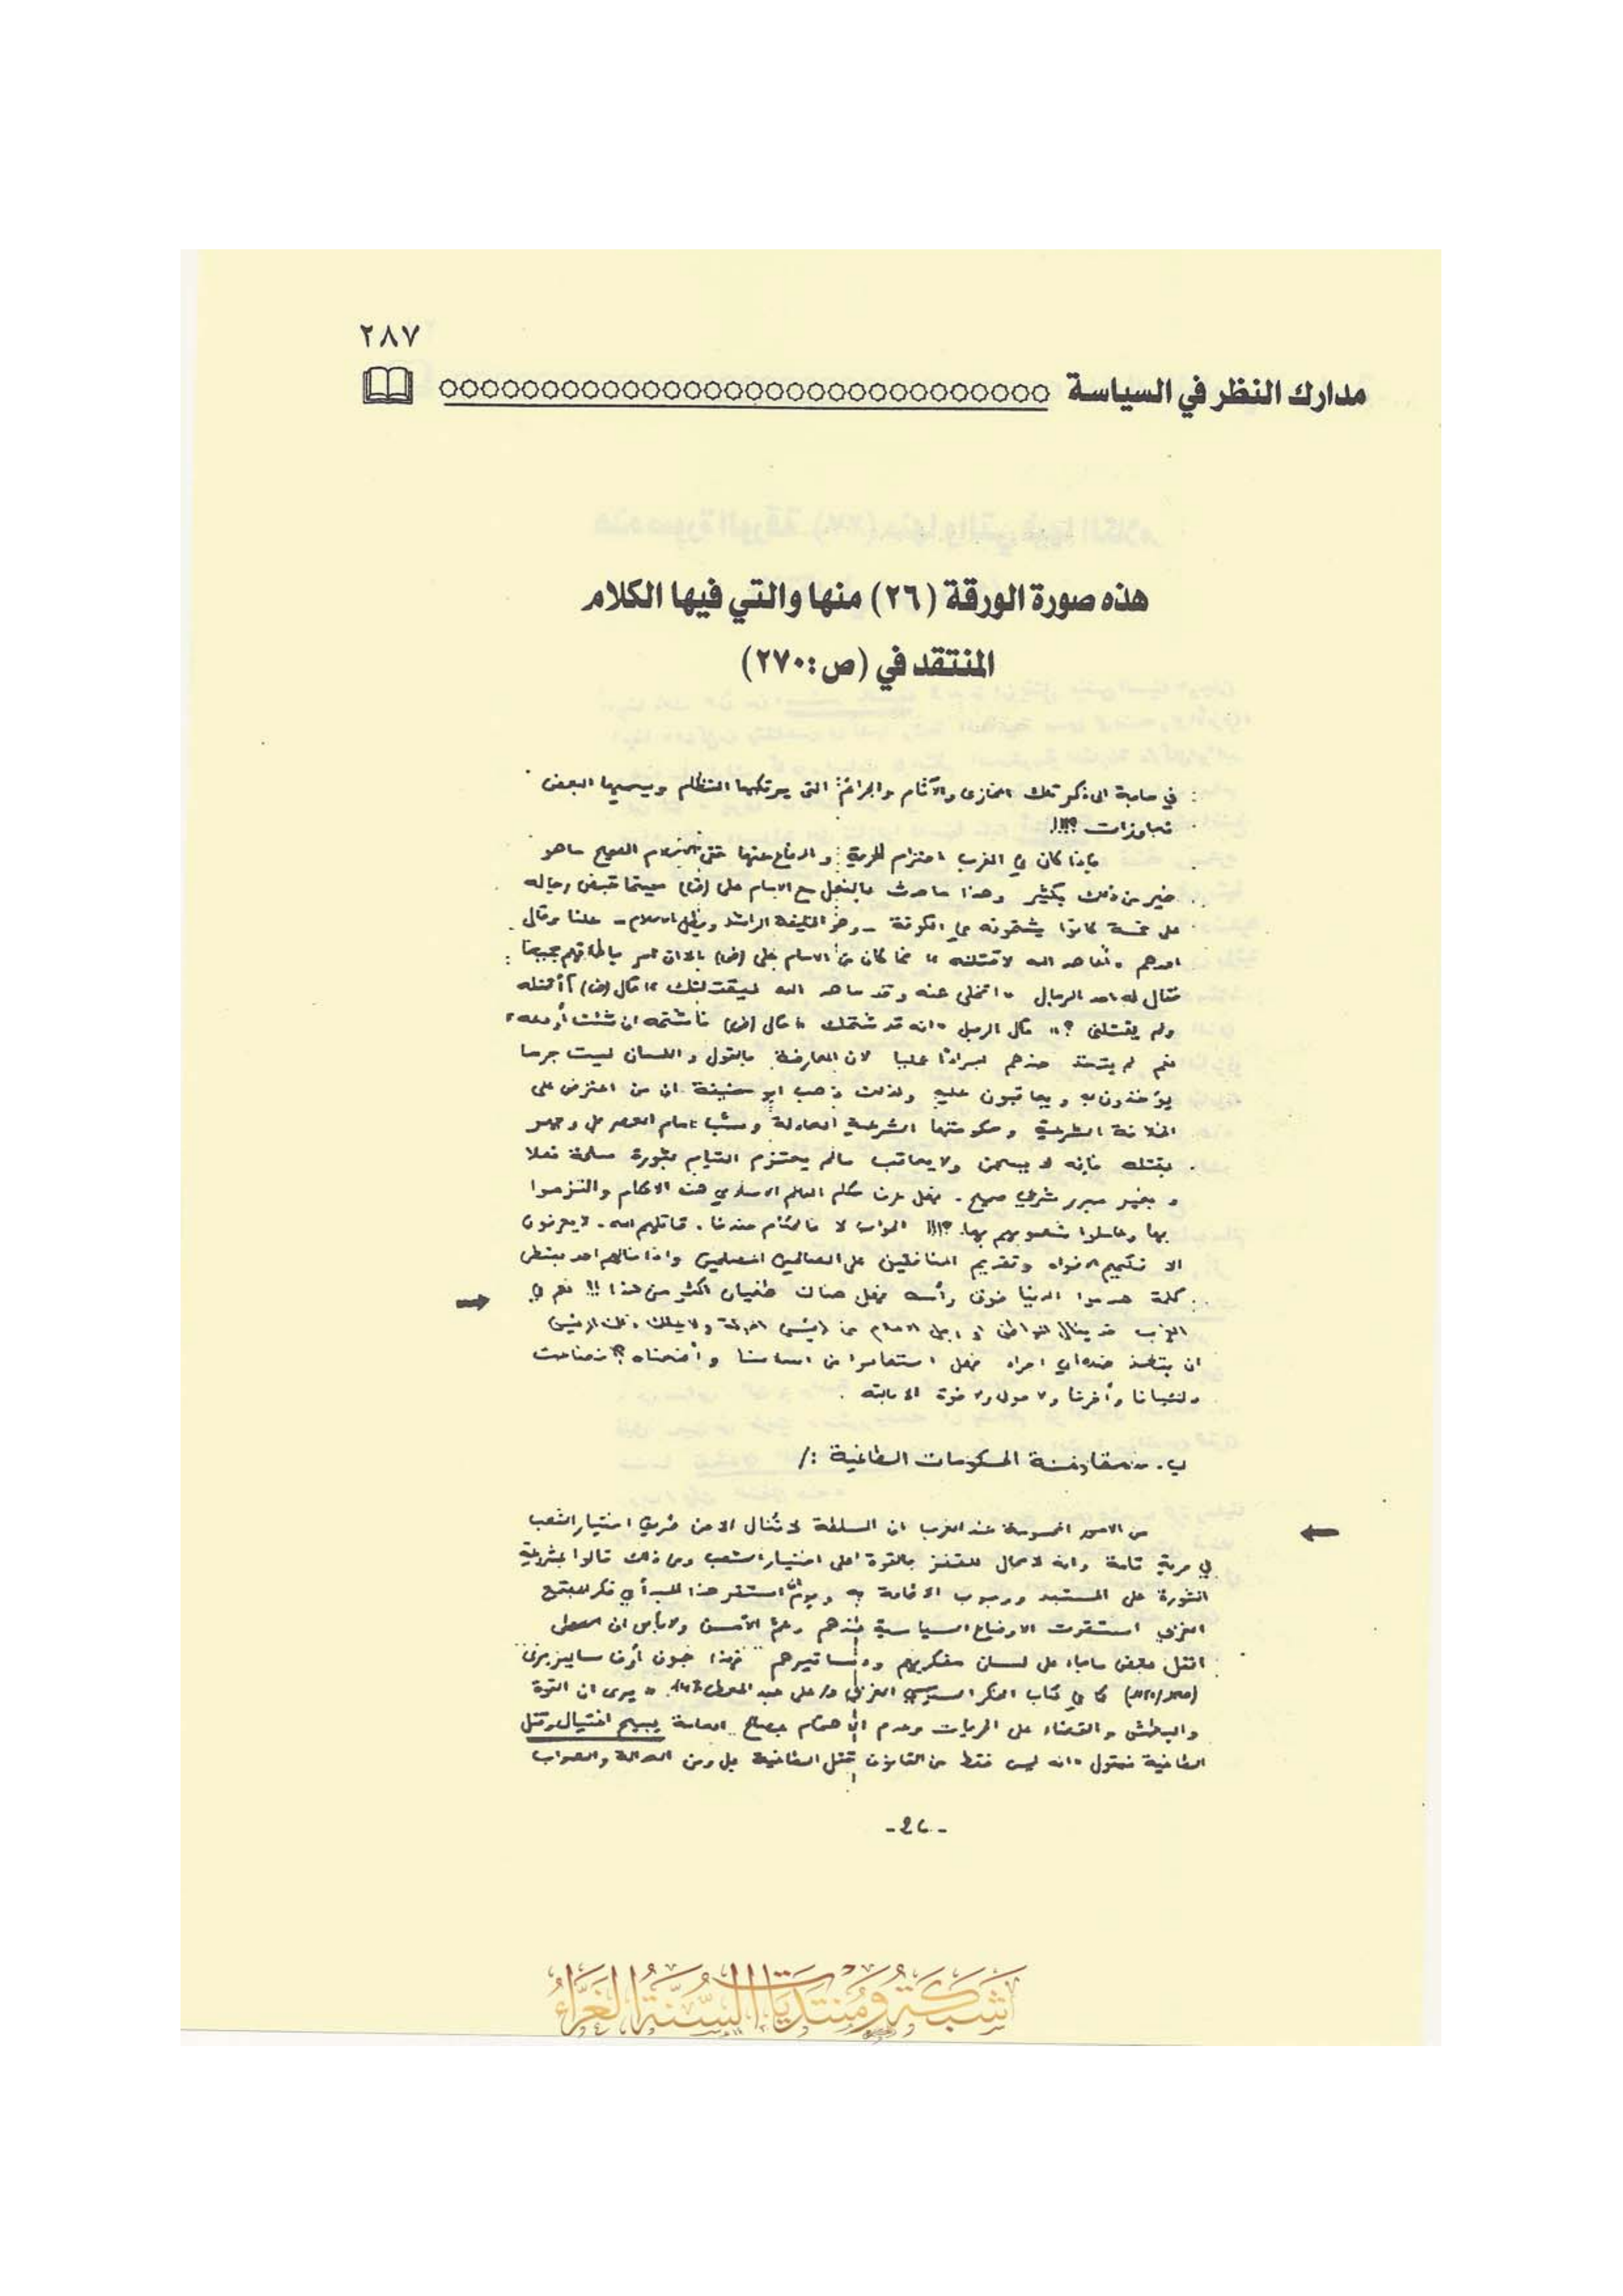 ٢٨٧
مدارك النظر في السياسة
هذه صورة الورقة (٢٦) منها والتي فيها الكلام
المنتقد في (ص:٢٧٠)
في حاجة الى ذكر تلك المخازى والآثام والجرائم التى يرتكبها النظام ويسميها البعض
تجاوزات ؟!!!
فاذا كان في الغرب احترام للحرية والدفاع عنها ففى الاسلام الصحيح ماهو
خير من ذلك بكثير وهذا ماحدث بالفعل مع الامام على (رض) حينما قبض رجاله
على خمسة كانوا يشتمونه في الكوفة - وهو الخليفة الراشد - علنا وقال
احدهم «أعاهد الله لاقتلنه» فما كان من الامام على (رض) الا ان امر باطلاقهم جميعا
فقال له احد الرجال «اتخلى عنه وقد عاهد الله ليقتلنك» قال (رض) أأقتله
ولم يقتلنى ؟» قال الرجل «انه قد شتمك» قال (رض) فاشتمه ان شئت أو دعه»
نعم لم يتخذ ضدهم اجراءا لان المعارضة بالقول واللسان ليست جرما
يؤخذون به ويعاقبون عليه ولذلك ذهب ابو حنيفة ان من اعترض على
الخلافة الشرعية وحكومتها الشرعية العادلة وسب امام العصر بل وجهر
بقتله فانه لا يسجن ولايعاقب مالم يعتزم القيام بثورة مسلحة فعلا
و بغير مبرر شرعي صحيح . فهل عرف حكام العالم الاسلامي هذه الاحكام والتزموا
بها وعاملوا شعوبهم بها ؟!!! الجواب لا فالحكام عندنا . قاتلهم الله . لايعرفون
الا تكميم الافواه وتقديم المنافقين على الصالحين المصلحين واذا احد ببعض
كلمة هدموا الدنيا فوق رأسه فهل هناك طغيان اكثر من هذا !!! نعم في
الغرب قد ينال المواطن او رجل الاعلام من رئيس الدولة ولا يملك ذلك الرئيس
ان يتخذ ضده اي اجراء فهل استفادوا من اسلامنا وأضعناه ؟ فضاعت
دنيانا وأخرنا ولا حول ولا قوة الا بالله .
ب. الحكومات الطاغية :/
من الامور عند الغرب ان السلطة لا تنال الا من طريق اختيار الشعب
في حرية تامة وانه لامجال للقفز بالقوة على اختيار الشعب ومن ذلك قالوا بشرعية
الثورة على المستبد ووجوب الاطاحة به ويوم استقر هذا المبدأ في فكر المجتمع
الغربي استقرت الاوضاع السياسية عندهم وعم الأمن ولابأس ان
انقل بعض ماجاء على لسان مفكريهم ودساتيرهم فهذا جون أوف ساليزبرى
كما في كتاب الفكر السياسي الغربي د/ على عبد المعطى يرى ان القوة
والبطش والقضاء على الحريات وعدم الاهتمام العامة يبيح اغتيال وقتل
الطاغية فيقول «انه ليس فقط من القانون قتل الطاغية بل ومن العدالة والصواب
- ٢٦ -
شبكة ومنتديات السنة الغراء